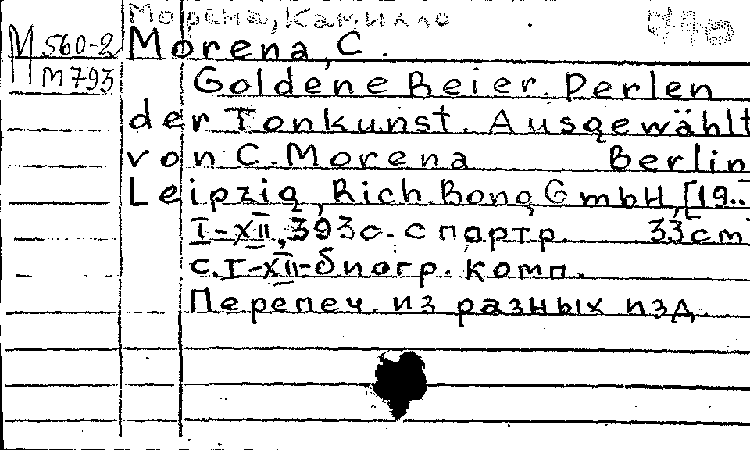 Морена, Камилло
М 560-2 Morena, C.
М 793 Goldene Beier. Perlen
der Tonkunst. Ausgewählt
von C. Morena Berlin
Leipzig, Rich. Bong, GmbH, [19..
I-XII, 393 с. с партр. 33 cm
с. I-XII-биогр. комп.
Перепеч. из разных изд.